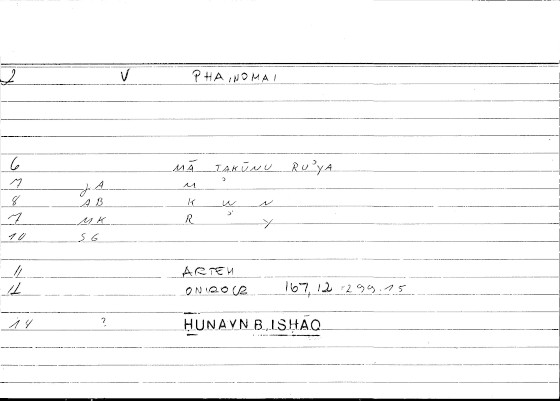 2 V PHAINOMAI
6 MĀ TAKŪNU RU'YA
7 JA M '
8 AB K W N
7 MK R ' Y
10 SG
11 ARTEM
12 ONIROCR 167,12 299.15
14 ? HUNAYN B. ISHĀQ